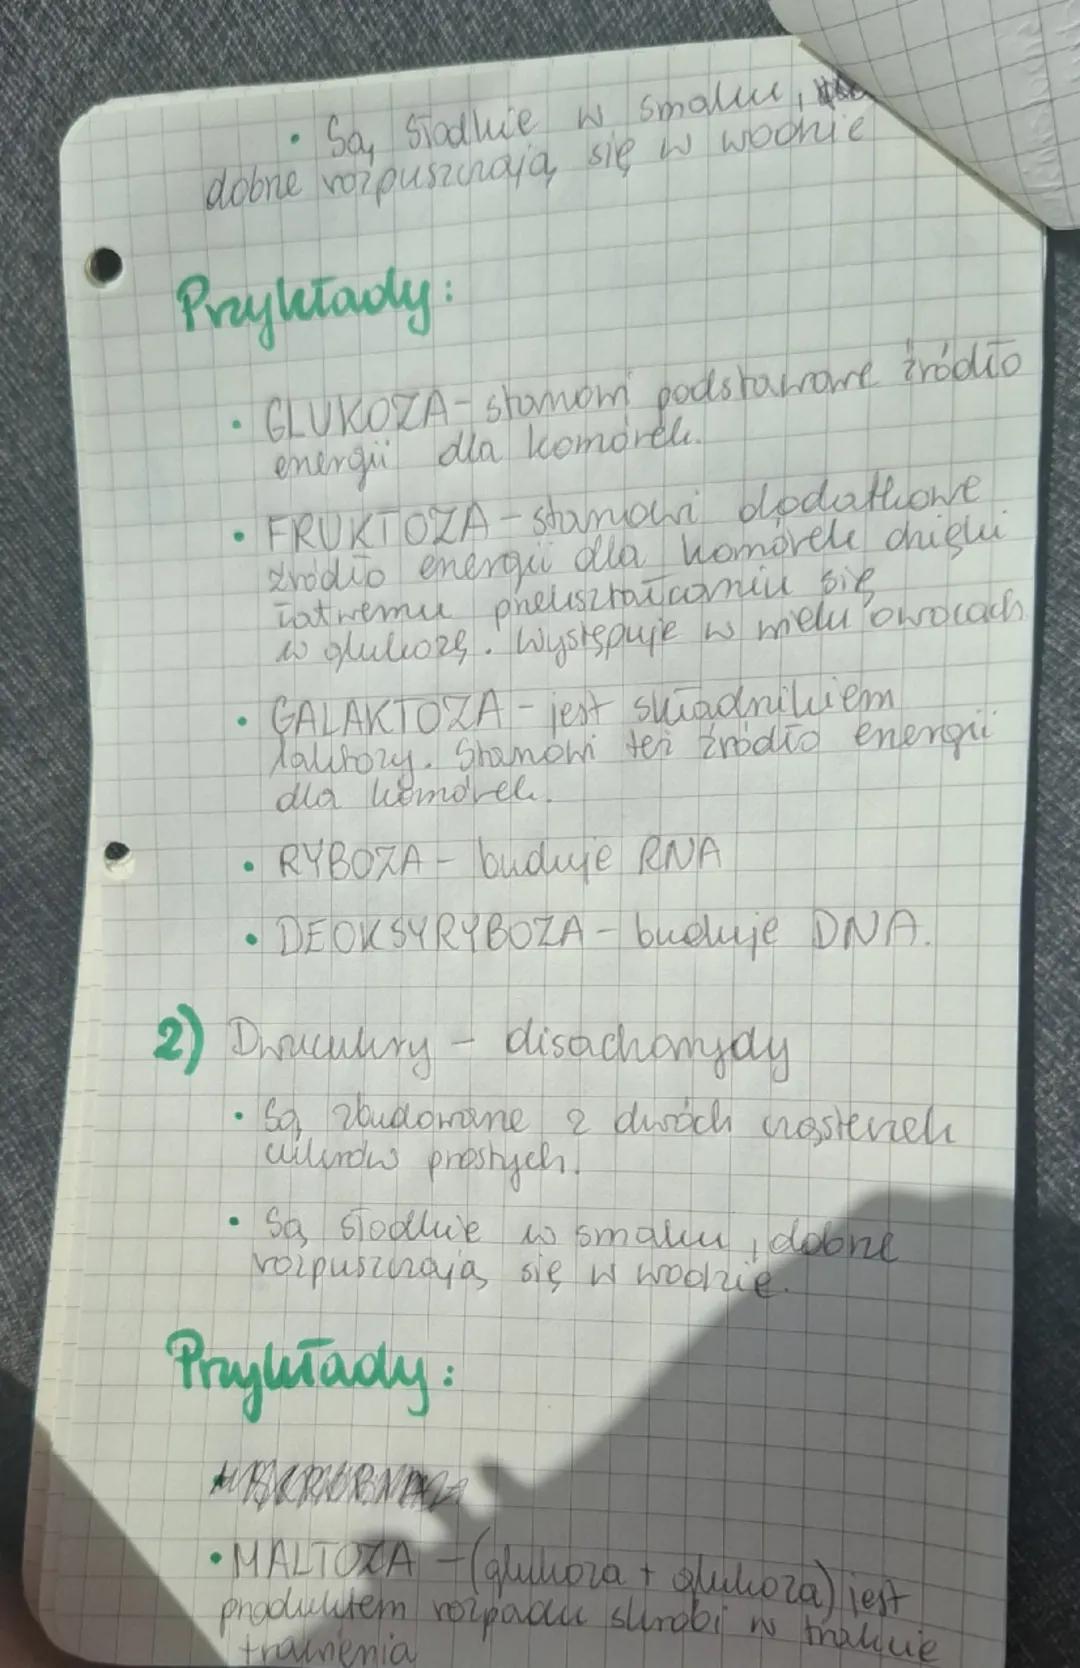 • Są słodkie w smaku,
dobrze rozpuszczają się w wodzie
Przykłady:
• GLUKOZA - stanowi podstawowe źródło
energii dla komórek.
• FRUKTOZA - stanowi dodatkowe
źródło energii dla komórek dzięki
łatwemu przekształcaniu się
w glukozę. Występuje w wielu owocach
• GALAKTOZA - jest składnikiem
laktozy. Stanowi też źródło energii
dla komórek.
• RYBOZA - buduje RNA
• DEOKSYRYBOZA - buduje DNA.
2) Dwucukry - disacharydy
• Są zbudowane z dwóch cząsteczek
cukrów prostych.
• Są słodkie w smaku, dobrze
rozpuszczają się w wodzie.
Przykłady:
• MALTOZA - (glukoza + glukoza) jest
produktem rozpadu skrobi w trakcie
trawienia